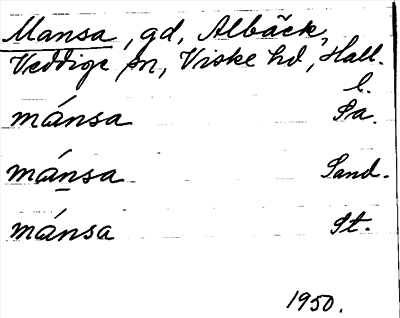 Mansa, gd, Albäck,
Veddige sn, Viske hd, Hall.
l.
mánsa Sa.
máṉsa Sand.
mánsa St.
1950.